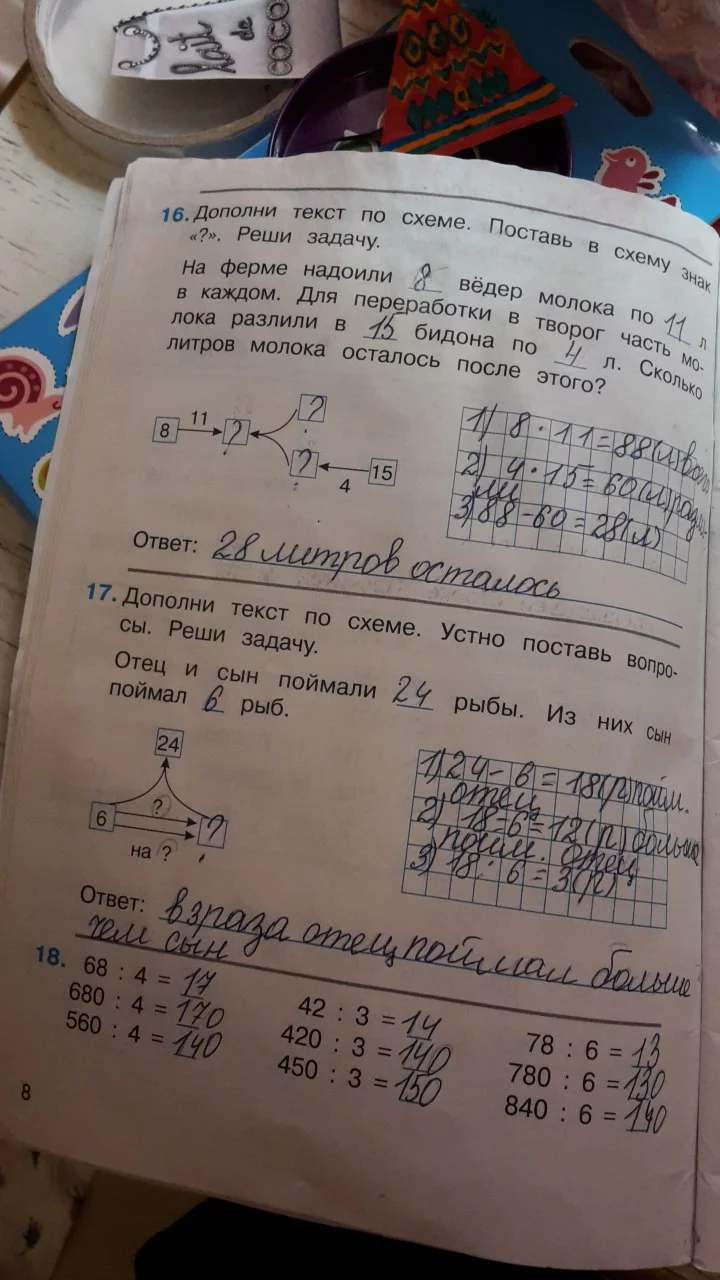 COCO
16. Дополни текст по схеме. Поставь в схему знак
«?». Реши задачу.
На ферме надоили 8 вёдер молока по 11 л
в каждом. Для переработки в творог часть мо-
лока разлили в 15 бидона по 4 л. Сколько
литров молока осталось после этого?
8 11 ? ? ? 4 15
1) 8 · 11 = 88(л)всего
2) 4 · 15 = 60(л)разли
ли
3) 88 - 60 = 28(л)
Ответ: 28 литров осталось
17. Дополни текст по схеме. Устно поставь вопро-
сы. Реши задачу.
Отец и сын поймали 24 рыбы. Из них сын
поймал 6 рыб.
24
6 ? ?
на ?
1) 24 - 6 = 18(р)пойм.
отец
2) 18-6=12(р) больше
пойм. отец
3) 18 : 6 = 3(р)
Ответ: в 3 раза отец поймал больше
чем сын
18. 68 : 4 = 17
680 : 4 = 170
560 : 4 = 140
42 : 3 = 14
420 : 3 = 140
450 : 3 = 150
78 : 6 = 13
780 : 6 = 130
840 : 6 = 140
8